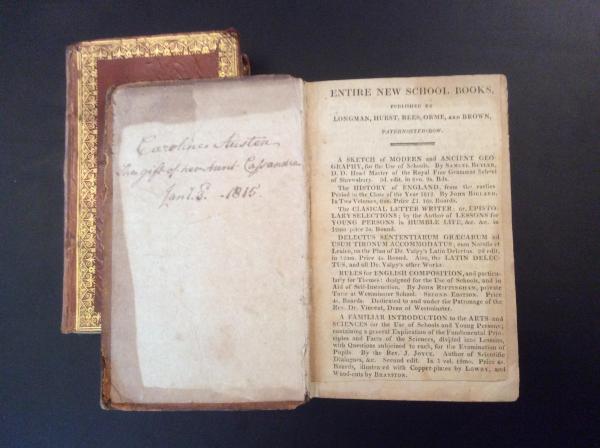 Caroline Austen
The gift of her Aunt Cassandra
Jan. 8. -1815
ENTIRE NEW SCHOOL BOOKS,
PUBLISHED BY
LONGMAN, HURST, REES, ORME, AND BROWN,
PATERNOSTER-ROW.
A SKETCH of MODERN and ANCIENT GEO-
GRAPHY, for the Use of Schools. By SAMUEL BUTLER,
D. D. Head Master of the Royal Free Grammar School
of Shrewsbury. 3d. edit. in 8vo. 9s. Bds.
The HISTORY of ENGLAND, from the earlies
Period to the Close of the Year 1812. By JOHN BIGLAND.
In Two Volumes, 8vo. Price £1. 16s. Boards.
The CLASICAL LETTER WRITER: or, EPISTO-
LARY SELECTIONS; by the Author of LESSONS for
YOUNG PERSONS in HUMBLE LIFE, &c. &c. in
12mo price 5s. Bound.
DELECTUS SENTENTIARUM GRÆCARUM ad
USUM TIRONUM ACCOMMODATUS; cum Notulis et
Lexico, on the Plan of Dr. Valpy's Latin Delectus. 2d edit.
in 12mo. Price 4s. Bound. Also, the LATIN DELEC-
TUS, and all Dr. Valpy's other Works.
RULES for ENGLISH COMPOSITION, and particu-
lary for Themes: designed for the Use of Schools, and in
Aid of Self-Instruction. By JOHN RIPPINGHAM, private
Tutor at Westminster School. SECOND EDITION. Price
4s. Boards. Dedicated to and under the Patronage of the
Rev. Dr. Vincent, Dean of Westminster.
A FAMILIAR INTRODUCTION to the ARTS and
SCIENCES for the Use of Schools and Young Persons;
containing a general Explication of the Fundamental Prin-
ciples and Facts of the Sciences, divided into Lessons,
with Questions subjoined to each, for the Examination of
Pupils. By the Rev. J. JOYCE. Author of Scientific
Dialogues, &c. Second edit. In 1 vol. 12mo. Price 6s.
Boards, illustrated with Copper-plates by LOWRY, and
Wood-cuts by BRANSTON.